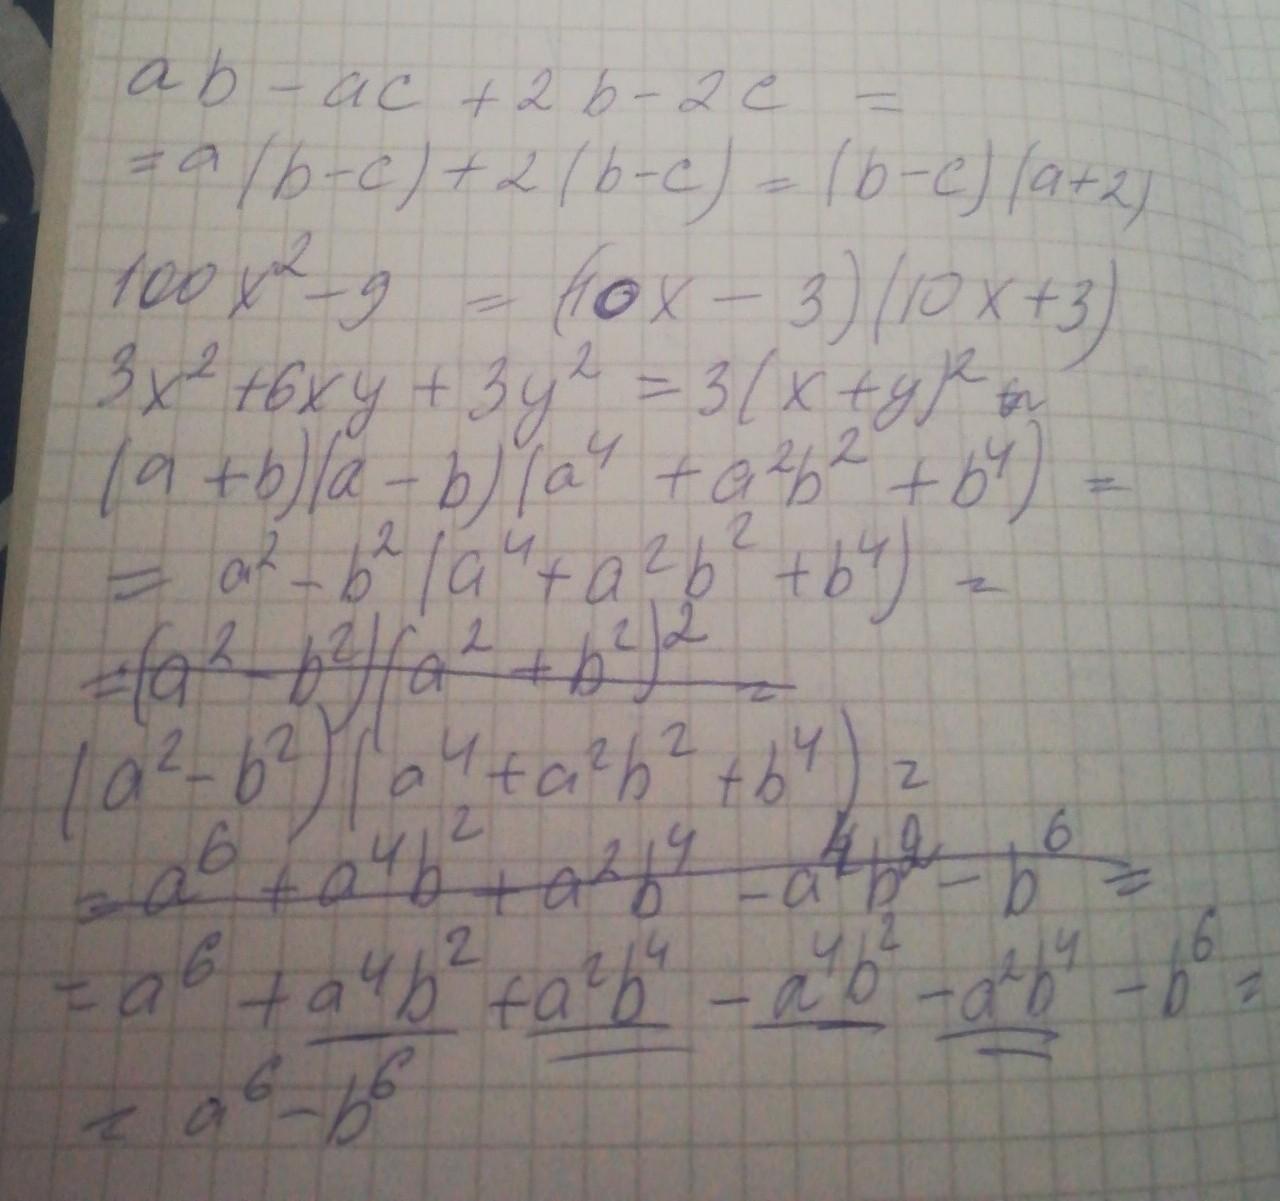 ab - ac + 2b - 2c =
= a(b-c) + 2(b-c) = (b-c)(a+2)
100x² - 9 = (10x - 3)(10x+3)
3x² + 6xy + 3y² = 3(x+y)²
(a+b)(a-b)(a⁴ + a²b² + b⁴) =
= a² - b²(a⁴ + a²b² + b⁴) =
= (a² - b²)(a² + b²)² =
(a² - b²)(a⁴ + a²b² + b⁴) =
= a⁶ + a⁴b² + a²b⁴ - a⁴b² - b⁶ =
= a⁶ + a⁴b² + a²b⁴ - a⁴b² - a²b⁴ - b⁶ =
= a⁶ - b⁶